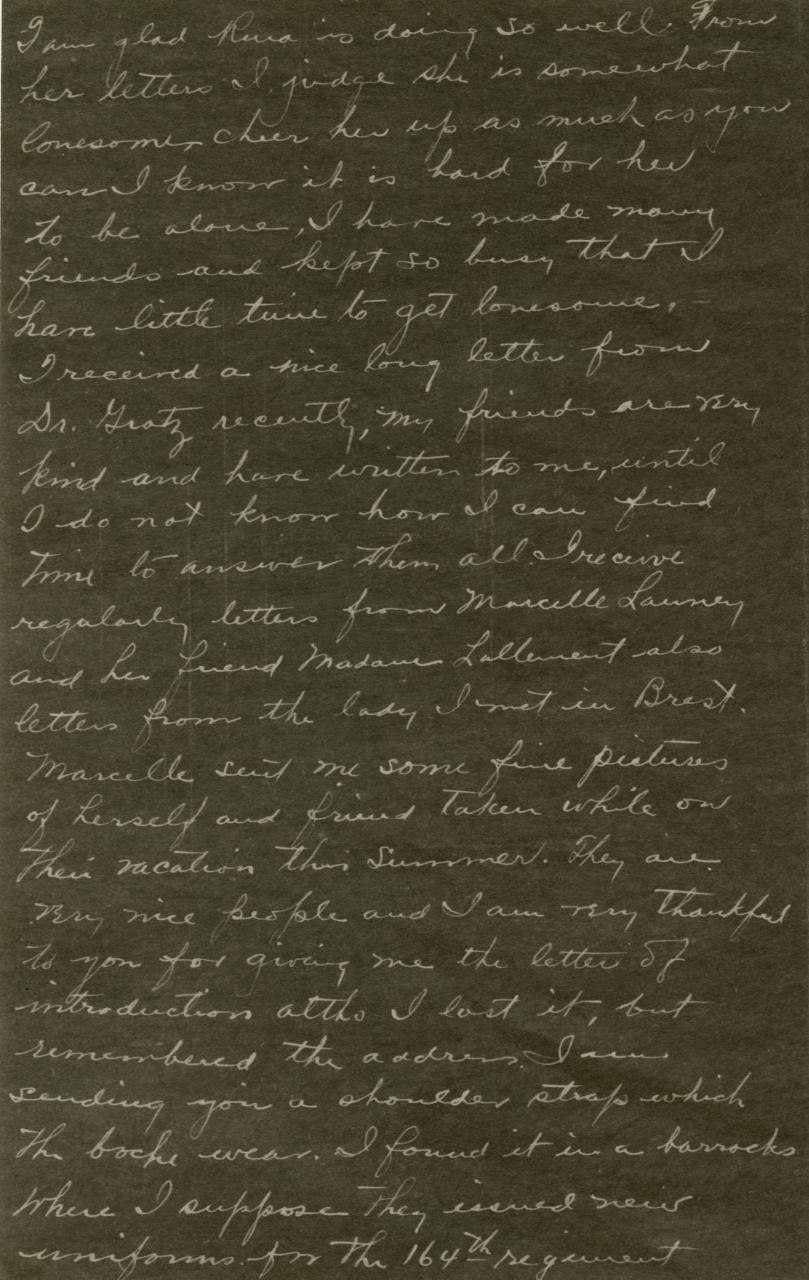 I am glad Rena is doing so well. From
her letters I judge she is somewhat
lonesome, cheer her up as much as you
can I know it is hard for her
to be alone, I have made many
friends and kept so busy that I
have little time to get lonesome.
I received a nice long letter from
Dr. Gratz recently, my friends are very
kind and have written to me, until
I do not know how I can find
time to answer them all. I recieve
regularly letters from Marcelle Launey
and her friend Madame Lallement also
letters from the lady I met in Brest.
Marcelle sent me some fine pictures
of herself and friend taken while on
their vacation this Summer. They are
very nice people and I am very thankful
to you for giving me the letter of
introduction altho I lost it, but
remembered the address. I am
sending you a shoulder strap which
the boche wear. I found it in a barrocks
where I suppose they issued new
uniforms for the 164th regiment